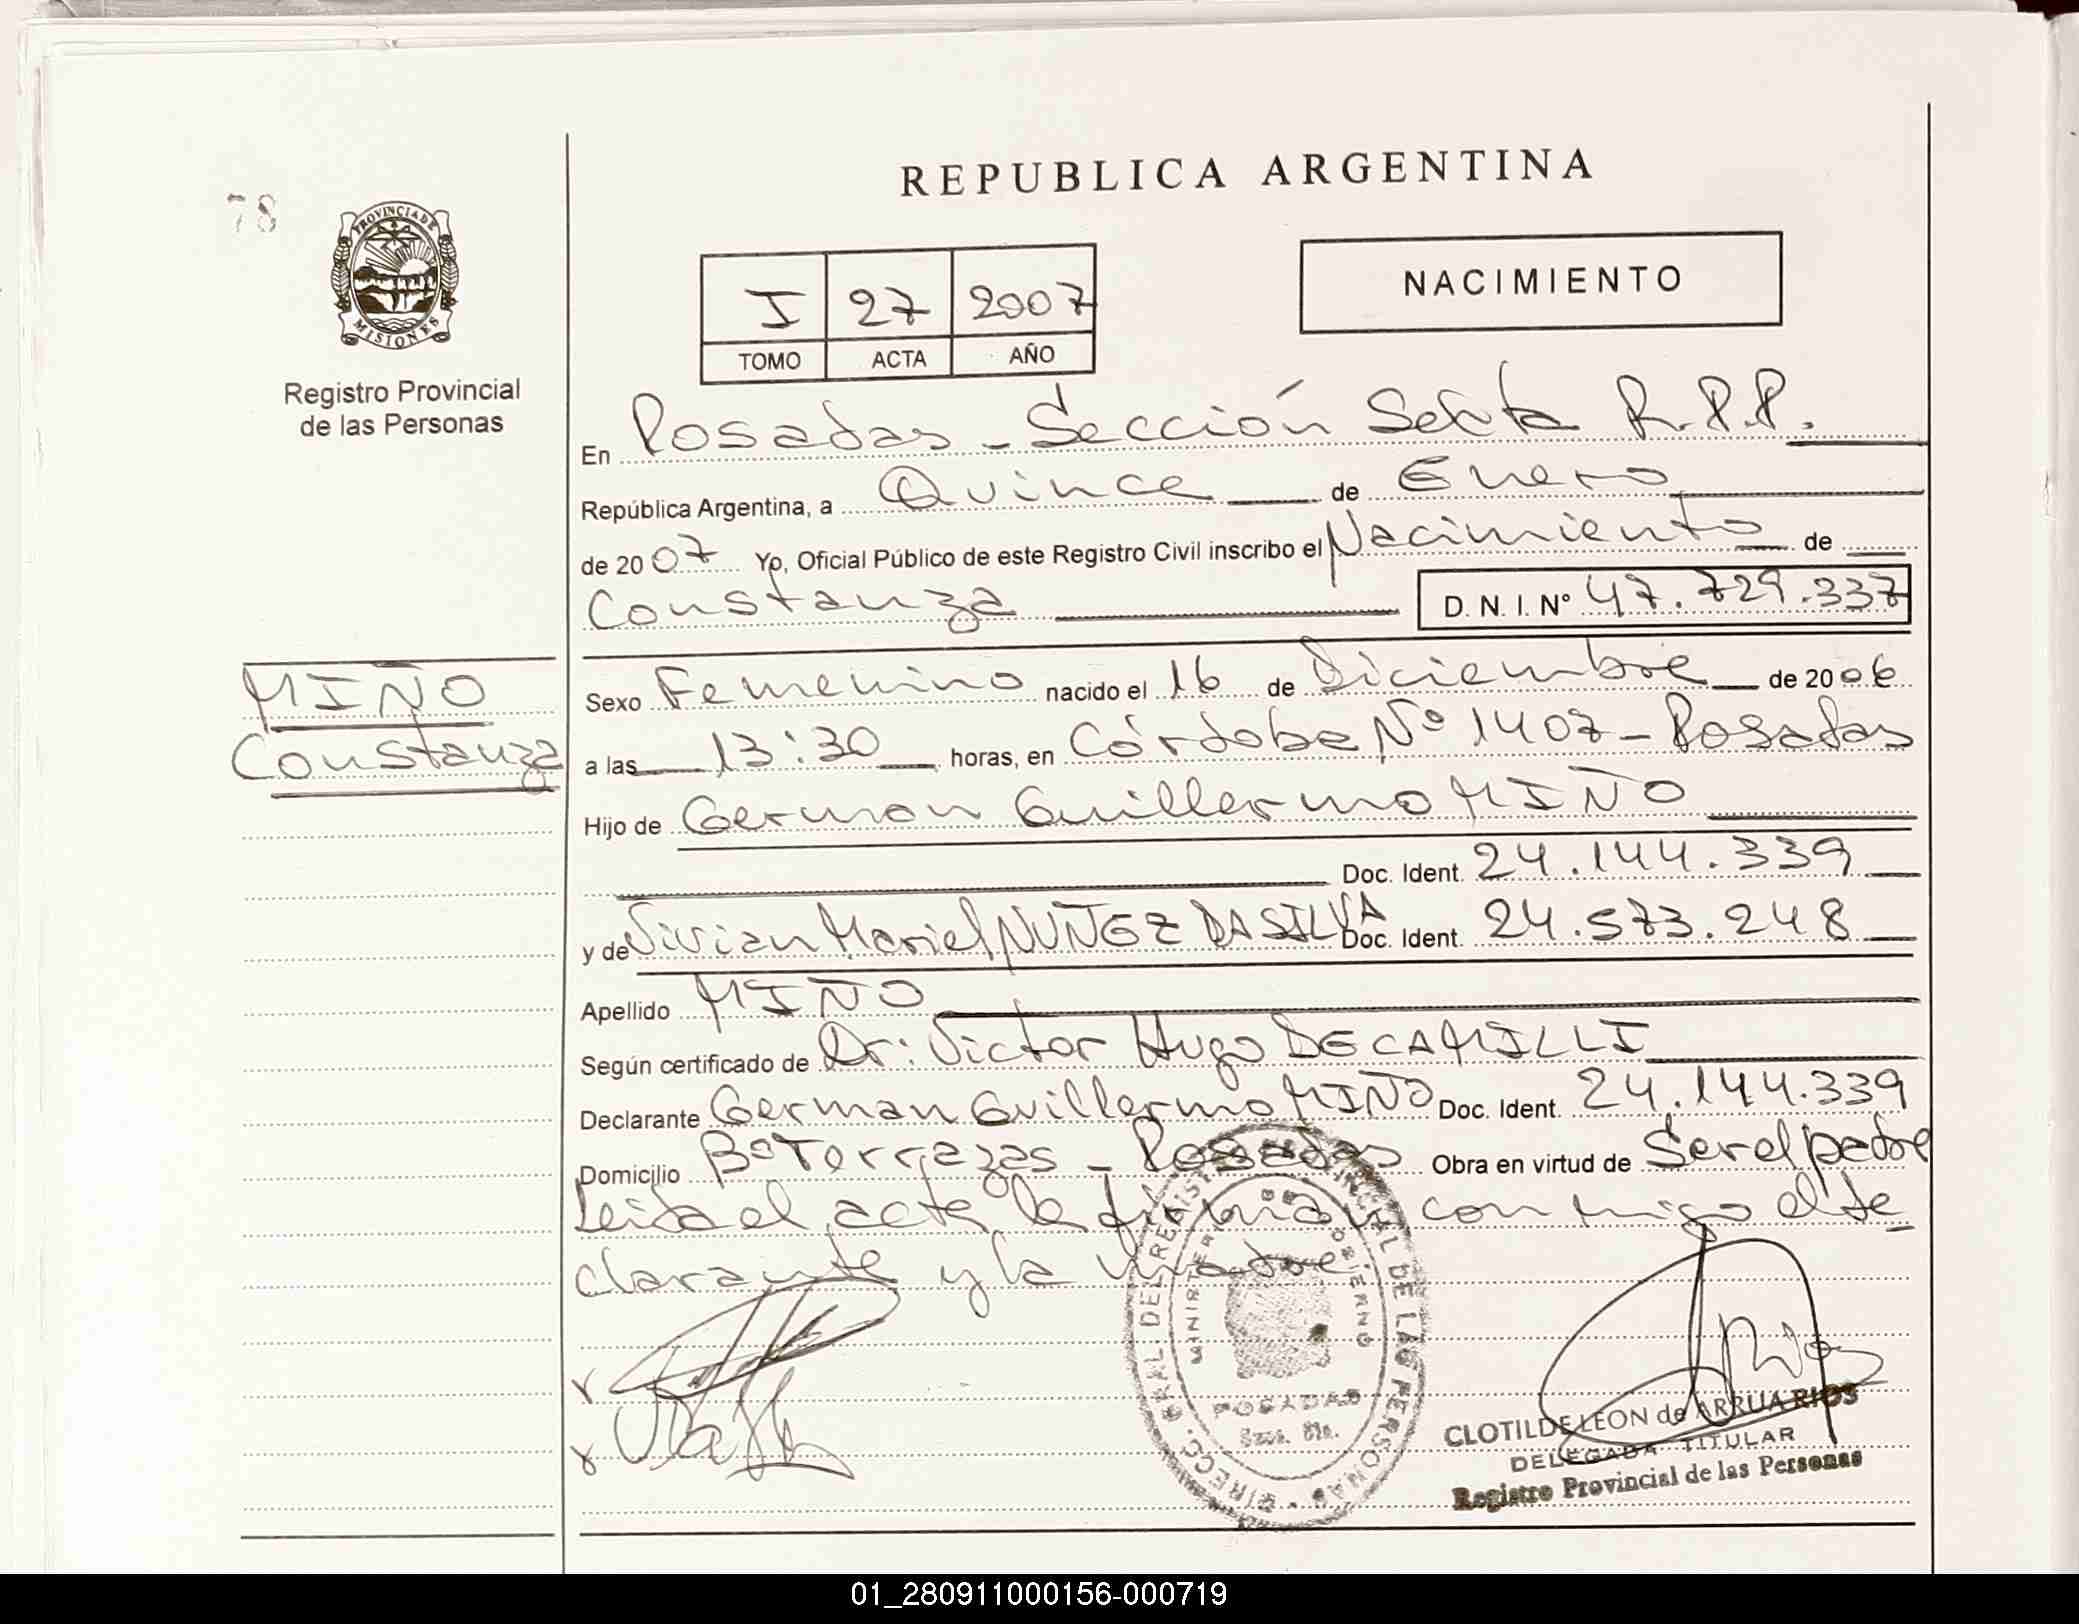 REPUBLICA ARGENTINA
78
PROVINCIA DE
MISIONES
Registro Provincial
de las Personas
NACIMIENTO
I 27 2007
TOMO ACTA AÑO
En Posadas - Sección Sexta R.P.P.
República Argentina, a Quince de Enero
de 2007 Yo, Oficial Público de este Registro Civil inscribo el Nacimiento de
Constanza D. N. I. Nº 47.729.337
MIÑO
Constanza
Sexo Femenino nacido el 16 de Diciembre de 2006
a las 13:30 horas, en Córdoba Nº 1407 - Posadas
Hijo de German Guillermo MIÑO
Doc. Ident. 24.144.339
y de Vivian Mariel NUÑEZ DA SILVA Doc. Ident. 24.573.248
Apellido MIÑO
Según certificado de Dr: Victor Hugo DECAMILLI
Declarante German Guillermo MIÑO Doc. Ident. 24.144.339
Domicilio Bº Terrazas - Posadas Obra en virtud de Ser el padre
Leida el acta la firman con migo el de
clarante y la madre
DIRECC. GRAL. DEL REGISTRO PROVINCIAL DE LAS PERSONAS
MINISTERIO DE GOBIERNO
POSADAS
CLOTILDE LEON de ARRUA RIOS
DELEGADA TITULAR
Registro Provincial de las Personas
01_280911000156-000719